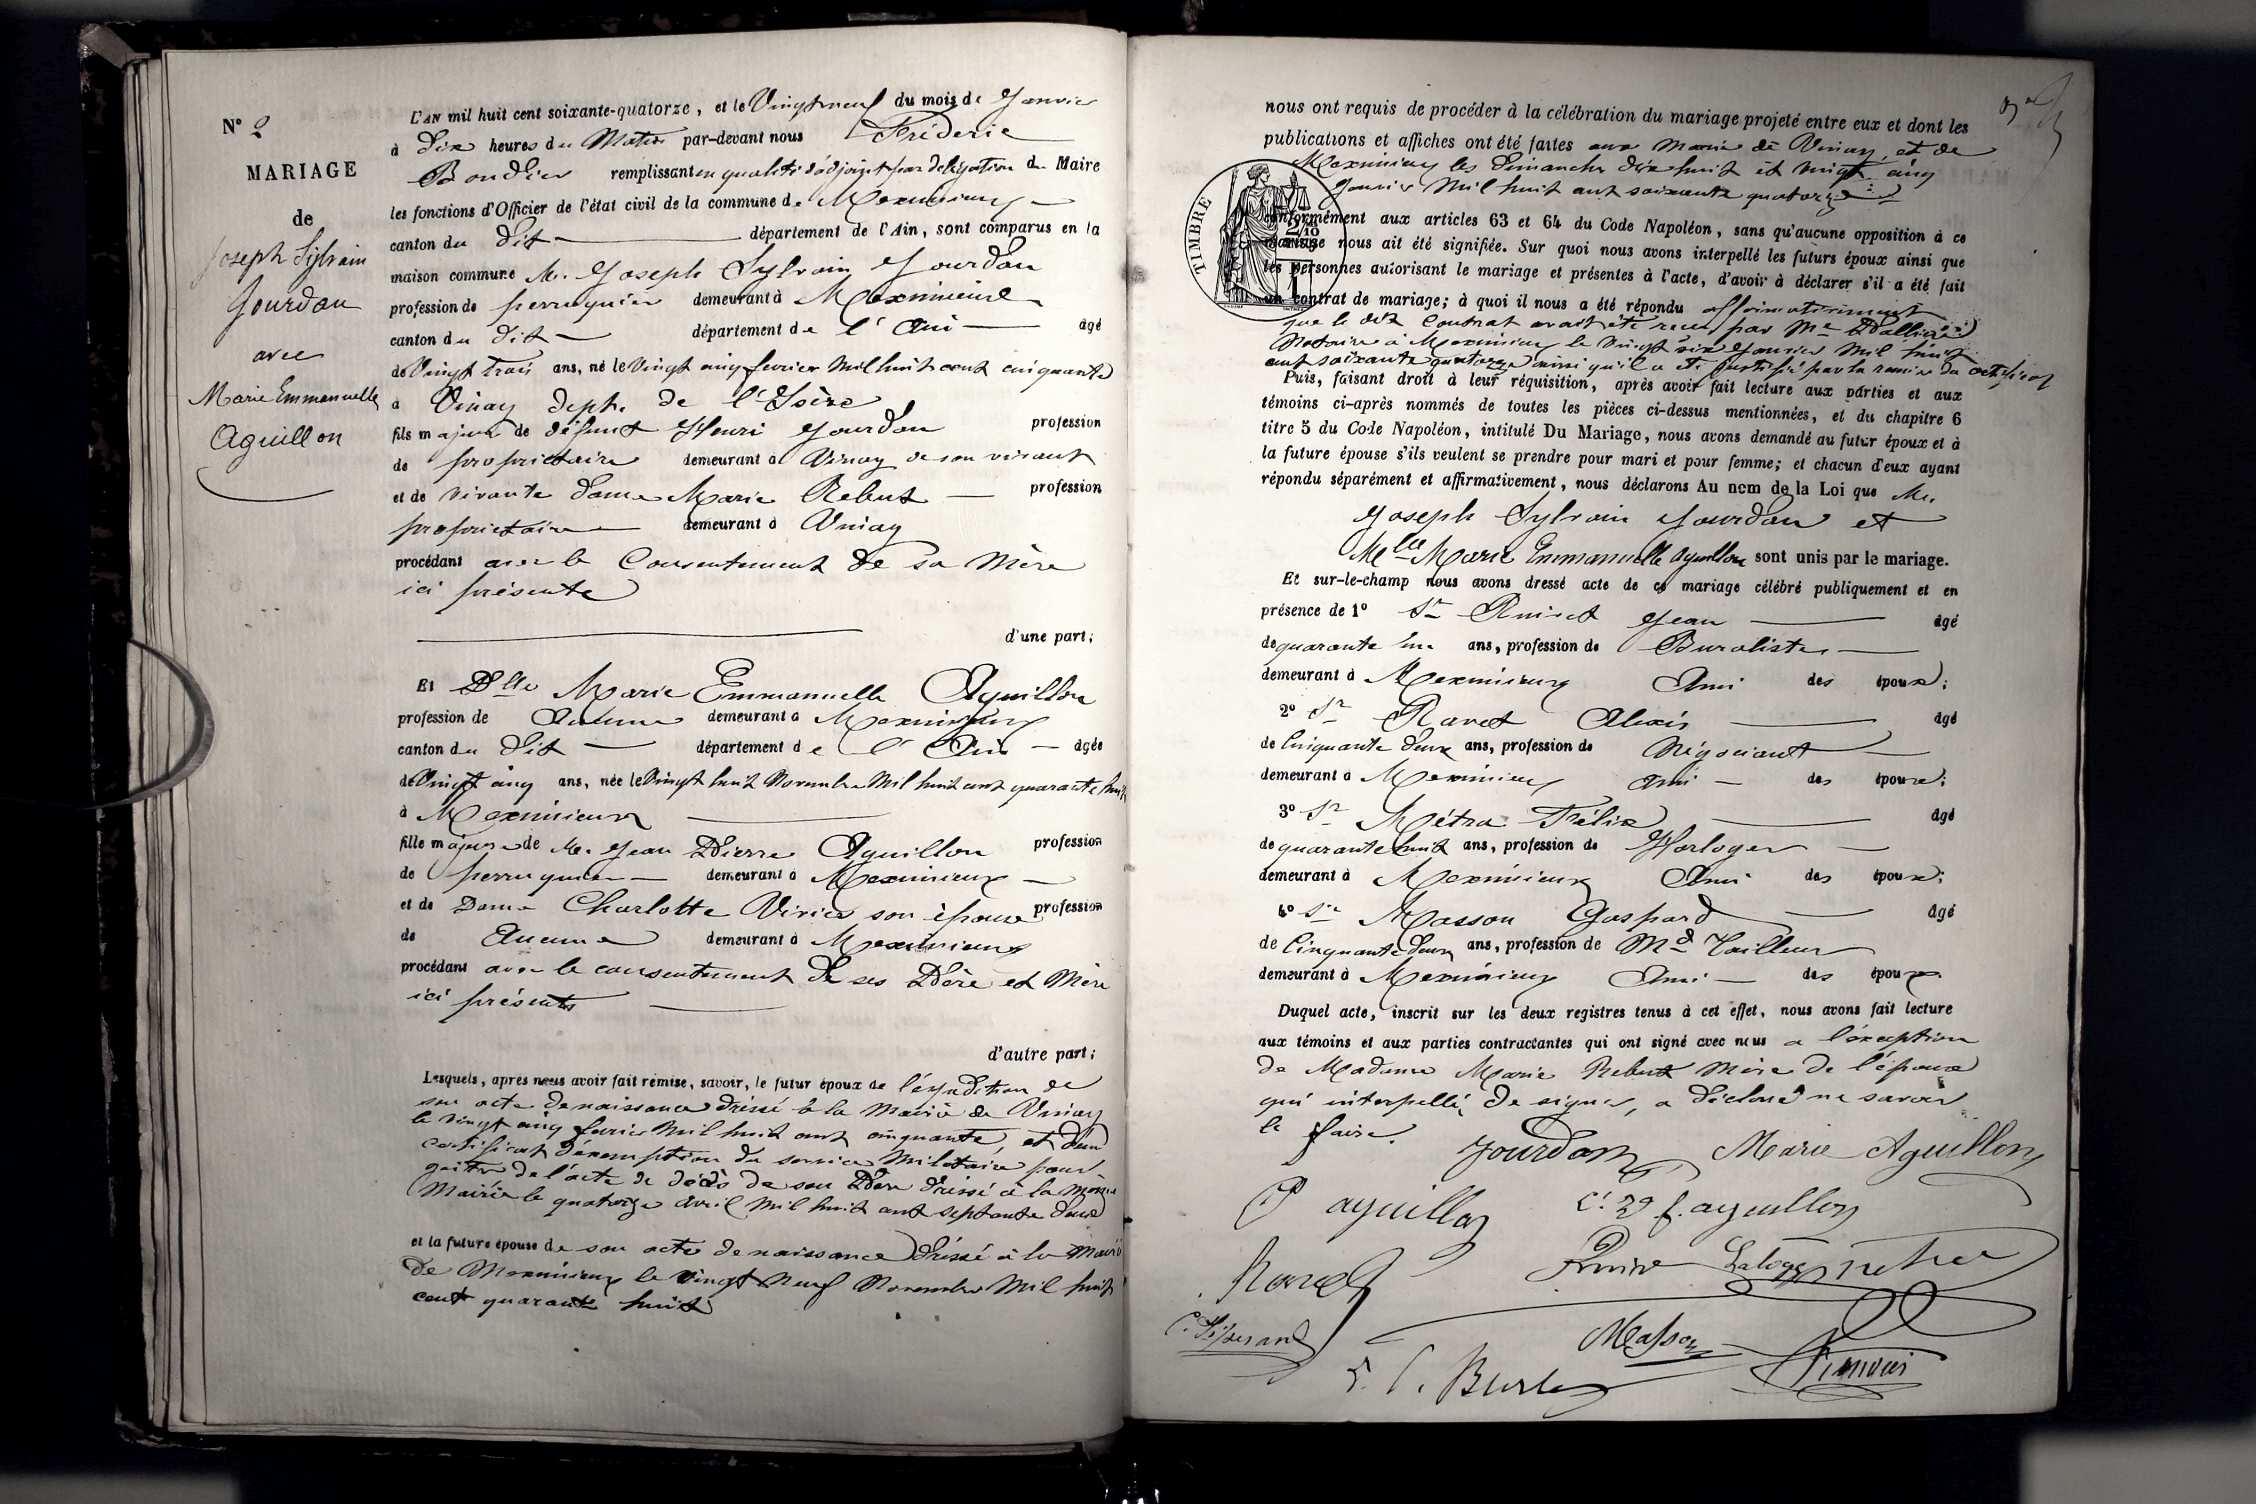 N° 2
MARIAGE
de
Joseph Sylvain
Jourdan
avec
Marie Emmanuelle
Aguillon
L'AN mil huit cent soixante-quatorze, et le Vingt neuf du mois de Janvier
à dix heures du Matin par-devant nous Fréderic
remplissant en qualité d'adjoint par délégation du Maire
les fonctions d'Officier de l'état civil de la commune de Meximieux
canton du dit département de l'Ain, sont comparus en la
maison commune M. Joseph Sylvain Jourdan
profession de perruquier demeurant à Meximieux
canton du dit département de l'Ain âgé
de Vingt trois ans, né le Vingt cinq fevrier Mil huit cent cinquante
à Vinay dept. de l'Isère
fils majeur de défunt Henri Jourdan profession
de propriétaire demeurant à Vinay de son vivant
et de vivante dame Marie Rebut profession
propriétaire demeurant à Vinay
procédant avec le Consentement de sa Mère
ici présente
d'une part;
Et Dlle Marie Emmanuelle Aguillon
profession de Aucune demeurant à Meximieux
canton du dit département de l'Ain âgée
de Vingt cinq ans, née le Vingt huit Novembre Mil huit cent quarante huit
à Meximieux
fille majeure de M. Jean Pierre Aguillon profession
de perruquier demeurant à Meximieux
et de Dame Charlotte Vivier son épouse profession
de Aucune demeurant à Meximieux
procédant avec le consentement de ses Père et Mère
ici présents
d'autre part;
Lesquels, après nous avoir fait remise, savoir, le futur époux de l'expédition de
son acte de naissance dréssé à la Mairie de Vinay
le vingt cinq fevrier Mil huit cent cinquante, et d'un
certificat d'éxemption du service Militaire
de l'acte de décès de son Père dréssé à la même
Mairie le quatorze Avril Mil huit cent septante deux
et la future épouse de son acte de naissance dréssé à la Mairie
de Meximieux le vingt Neuf Novembre Mil huit
cent quarante huit
nous ont requis de procéder à la célébration du mariage projeté entre eux et dont les
publications et affiches ont été faites aux Mairie de Vinay et de
Meximieux les Dimanche dix huit et vingt cinq
Janvier Mil huit cent soixante quatorze
TIMBRE
conformément aux articles 63 et 64 du Code Napoléon, sans qu'aucune opposition à ce
mariage nous ait été signifiée. Sur quoi nous avons interpellé les futurs époux ainsi que
les personnes autorisant le mariage et présentes à l'acte, d'avoir à déclarer s'il a été fait
un contrat de mariage; à quoi il nous a été répondu affirmativement
que le dit Contrat avait été recu par Me
Notaire à Meximieux le Vingt six Janvier Mil huit
cent soixante quatorze ainsi qu'il a été justifié par la remise du certificat
Puis, faisant droit à leur réquisition, après avoir fait lecture aux parties et aux
témoins ci-après nommés de toutes les pièces ci-dessus mentionnées, et du chapitre 6
titre 5 du Code Napoléon, intitulé Du Mariage, nous avons demandé au futur époux et à
la future épouse s'ils veulent se prendre pour mari et pour femme; et chacun d'eux ayant
répondu séparément et affirmativement, nous déclarons Au nom de la Loi que M.
Joseph Sylvain Jourdan et
Melle Marie Emmanuelle Aguillon sont unis par le mariage.
Et sur-le-champ nous avons dressé acte de ce mariage célébré publiquement et en
présence de 1° Sr Jean âgé
de quarante un ans, profession de Buraliste
demeurant à Meximieux Ami des époux;
2° Sr Ravet Alexis âgé
de Cinquante deux ans, profession de Négociant
demeurant à Meximieux Ami des époux;
3° Sr Métra Félix âgé
de quarante huit ans, profession de Horloger
demeurant à Meximieux Ami des époux;
4° Sr Masson Gaspard âgé
de Cinquante deux ans, profession de Md Tailleur
demeurant à Meximieux Ami des époux.
Duquel acte, inscrit sur les deux registres tenus à cet effet, nous avons fait lecture
aux témoins et aux parties contractantes qui ont signé avec nous a l'éxception
de Madame Marie Rebut Mère de l'époux
qui interpellée de signer, a déclaré ne savoir
le faire.
Jourdan Marie Aguillon
P aguillon C. V f. aguillon
Ravet
Masson